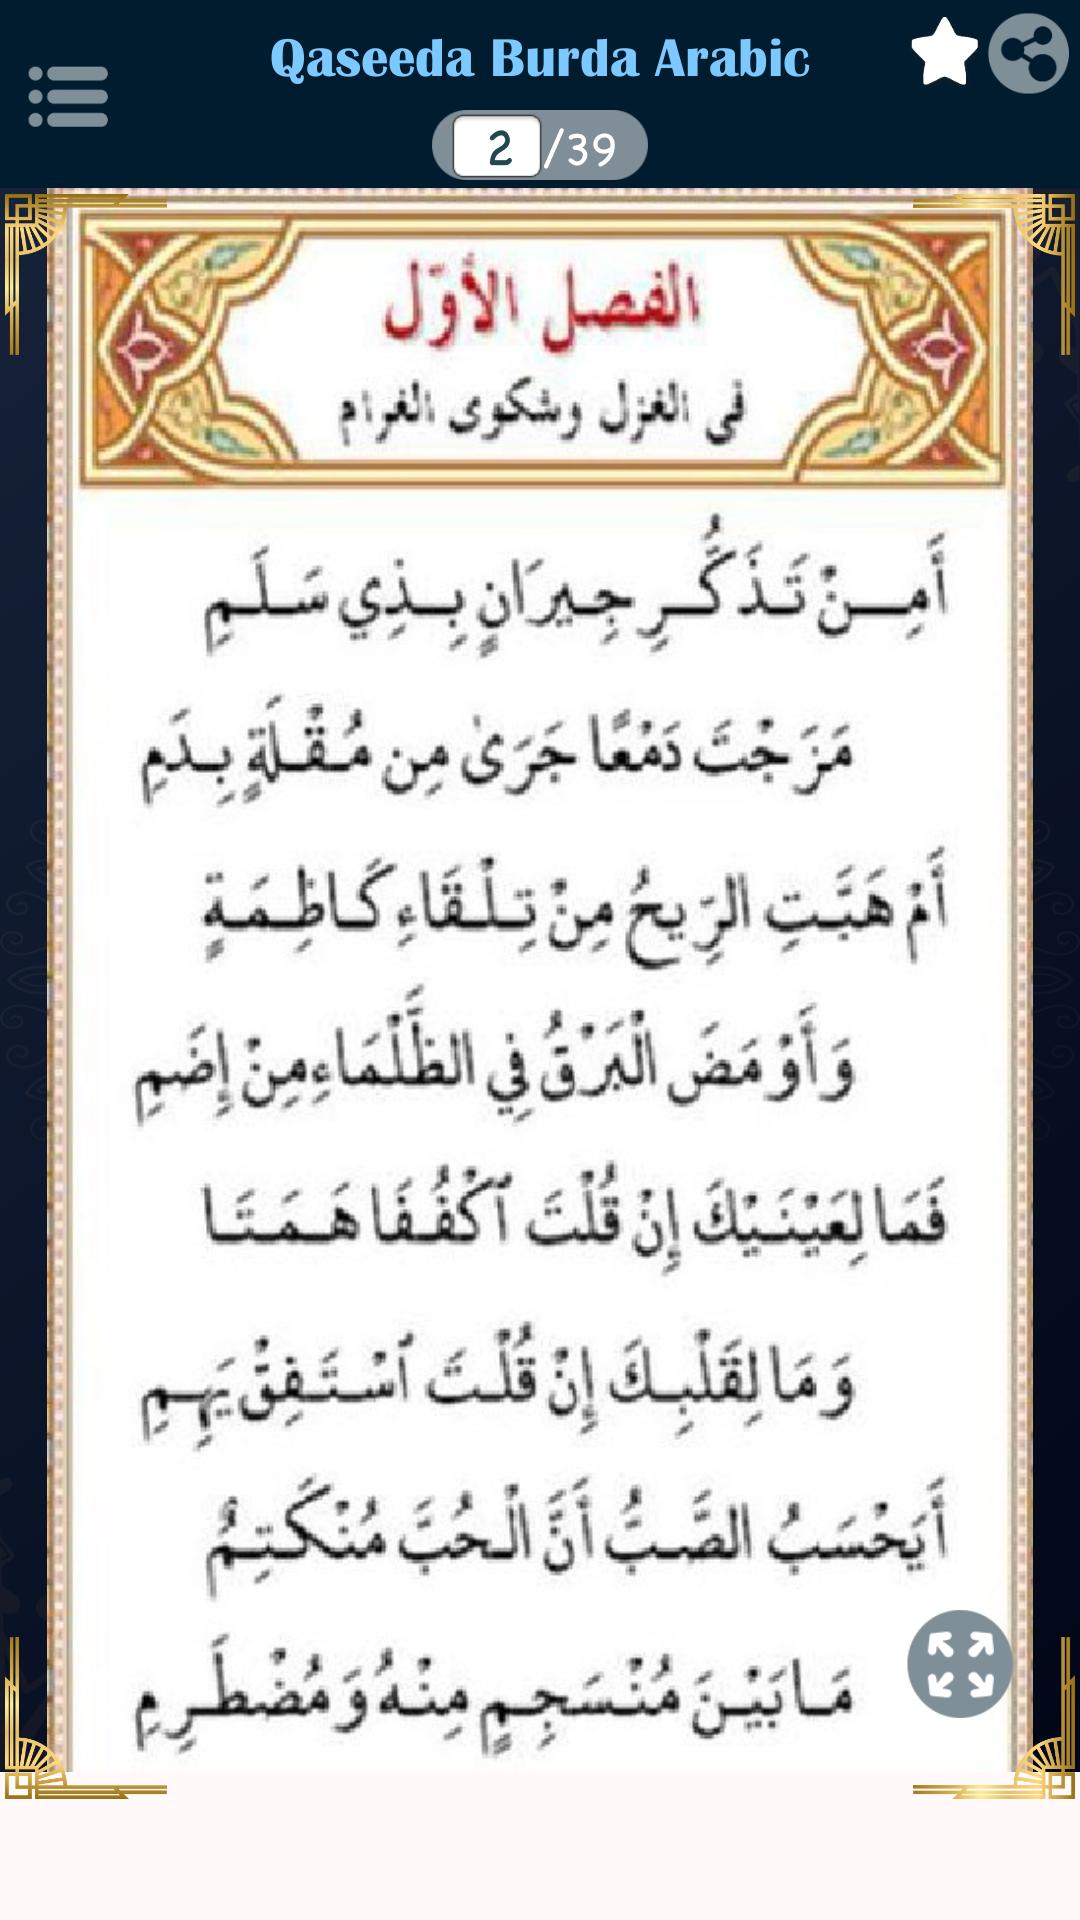 Qaseeda Burda Arabic
2/39
الفصل الأوّل
في الغزل وشكوى الغرام
أَمِنْ تَذَكُّرِ جِيرَانٍ بِذِي سَلَمِ
مَزَجْتَ دَمْعًا جَرَىٰ مِن مُقْلَةٍ بِدَمِ
أَمْ هَبَّتِ الرِّيحُ مِنْ تِلْقَاءِ كَاظِمَةٍ
وَأَوْمَضَ الْبَرْقُ فِي الظَّلْمَاءِ مِنْ إِضَمِ
فَمَا لِعَيْنَيْكَ إِنْ قُلْتَ ٱكْفُفَا هَمَتَا
وَمَا لِقَلْبِكَ إِنْ قُلْتَ ٱسْتَفِقْ يَهِمِ
أَيَحْسَبُ الصَّبُّ أَنَّ الْحُبَّ مُنْكَتِمٌ
مَا بَيْنَ مُنْسَجِمٍ مِنْهُ وَمُضْطَرِمِ